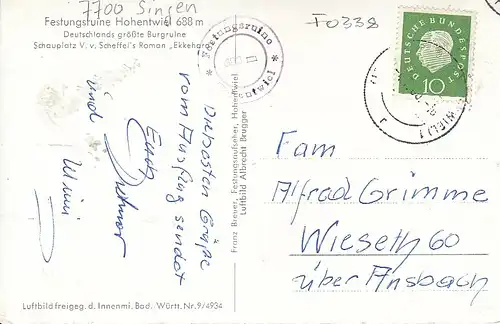 7700 Singen
F0338
Festungsruine Hohentwiel 688 m
Deutschlands größte Burgruine
Schauplatz V. v. Scheffel's Roman „Ekkehard
* Festungsruine *
DEUTSCHE BUNDESPOST
10
Die besten Grüße
vom Ausflug sendet
Euch Dietmar
und
Franz Breyer, Festungsaufseher, Hohentwiel
Luftbild Albrecht Brugger
Fam
Alfred Grimme
Wieseth 60
über Ansbach
Luftbildfreigeg. d. Innenmi. Bad.-Württ. Nr. 9/4934